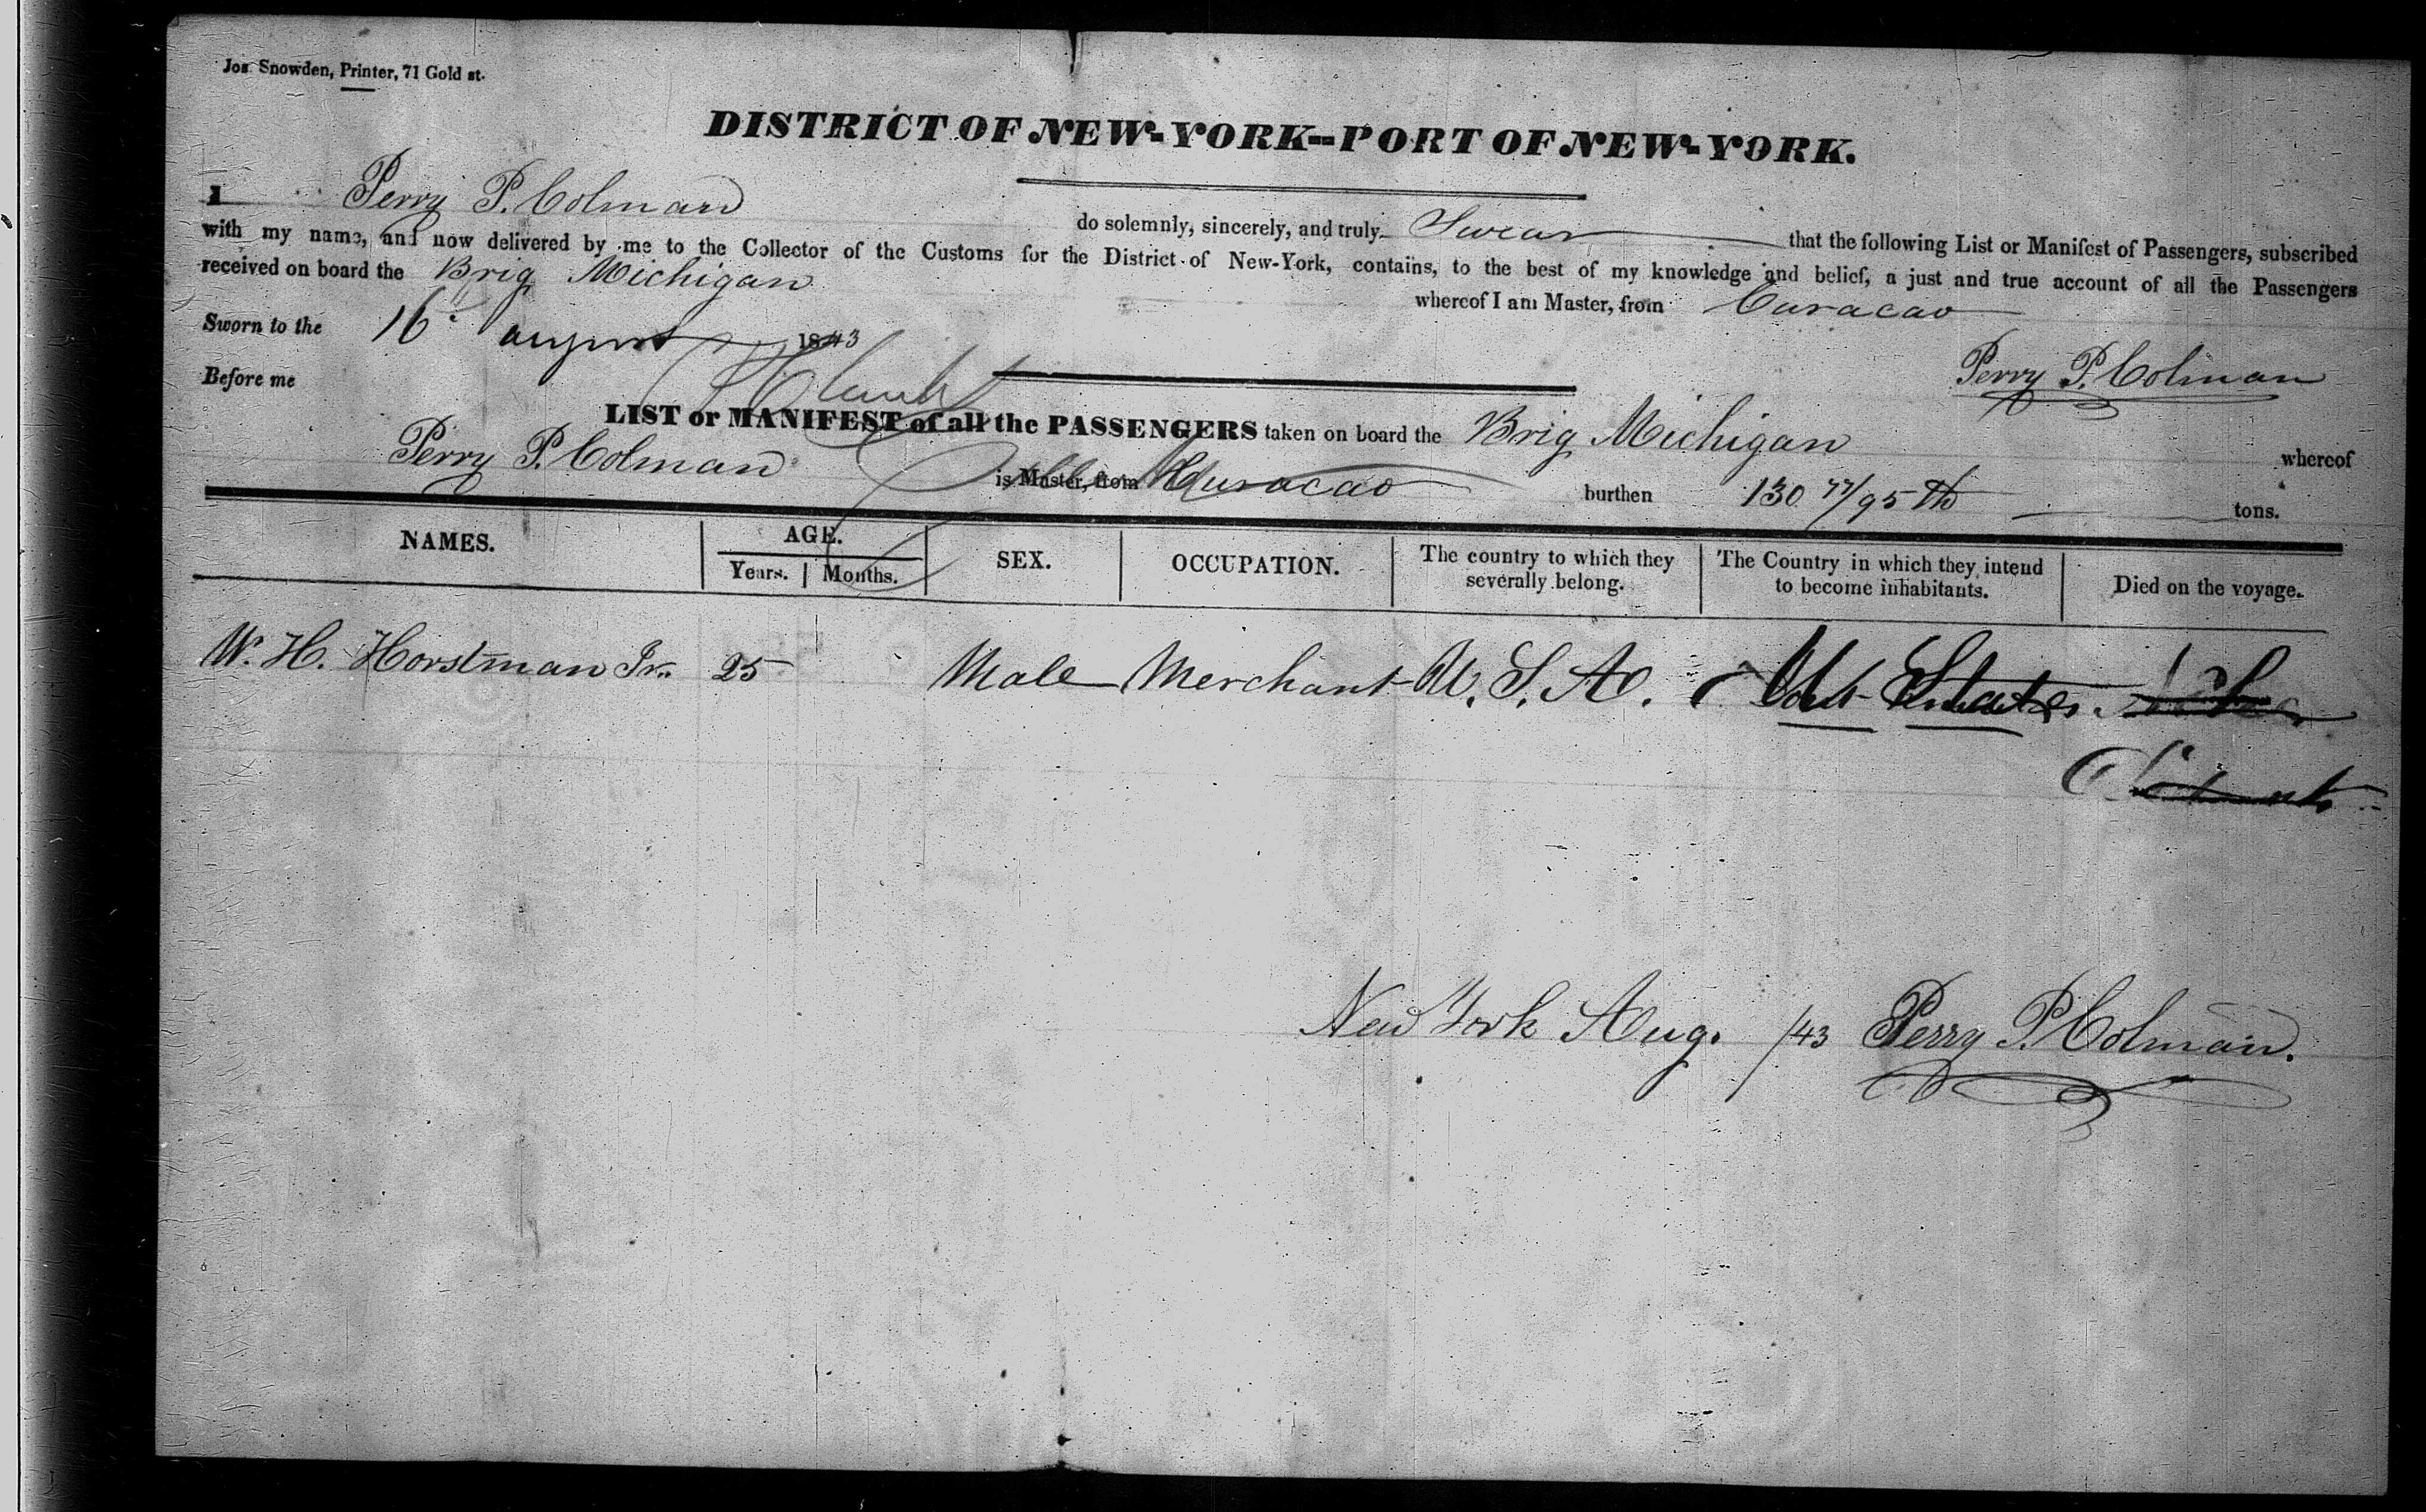 Jos. Snowden, Printer, 71 Gold st.
DISTRICT OF NEW-YORK--PORT OF NEW-YORK.
I Perry P. Colman do solemnly, sincerely, and truly Swear that the following List or Manifest of Passengers, subscribed
with my name, and now delivered by me to the Collector of the Customs for the District of New-York, contains, to the best of my knowledge and belief, a just and true account of all the Passengers
received on board the Brig Michigan whereof I am Master, from Curacao
Sworn to the 16 august 1843
Perry P. Colman
Before me
LIST or MANIFEST of all the PASSENGERS taken on board the Brig Michigan whereof
Perry P. Colman is Master, from Curacao burthen 130 77/95 th tons.
NAMES. AGE. SEX. OCCUPATION. The country to which they severally belong. The Country in which they intend to become inhabitants. Died on the voyage.
Years. Months.
W. H. Horstman Jr. 25 Male Merchant U. S. A. States
New York Aug. /43 Perry P. Colman.